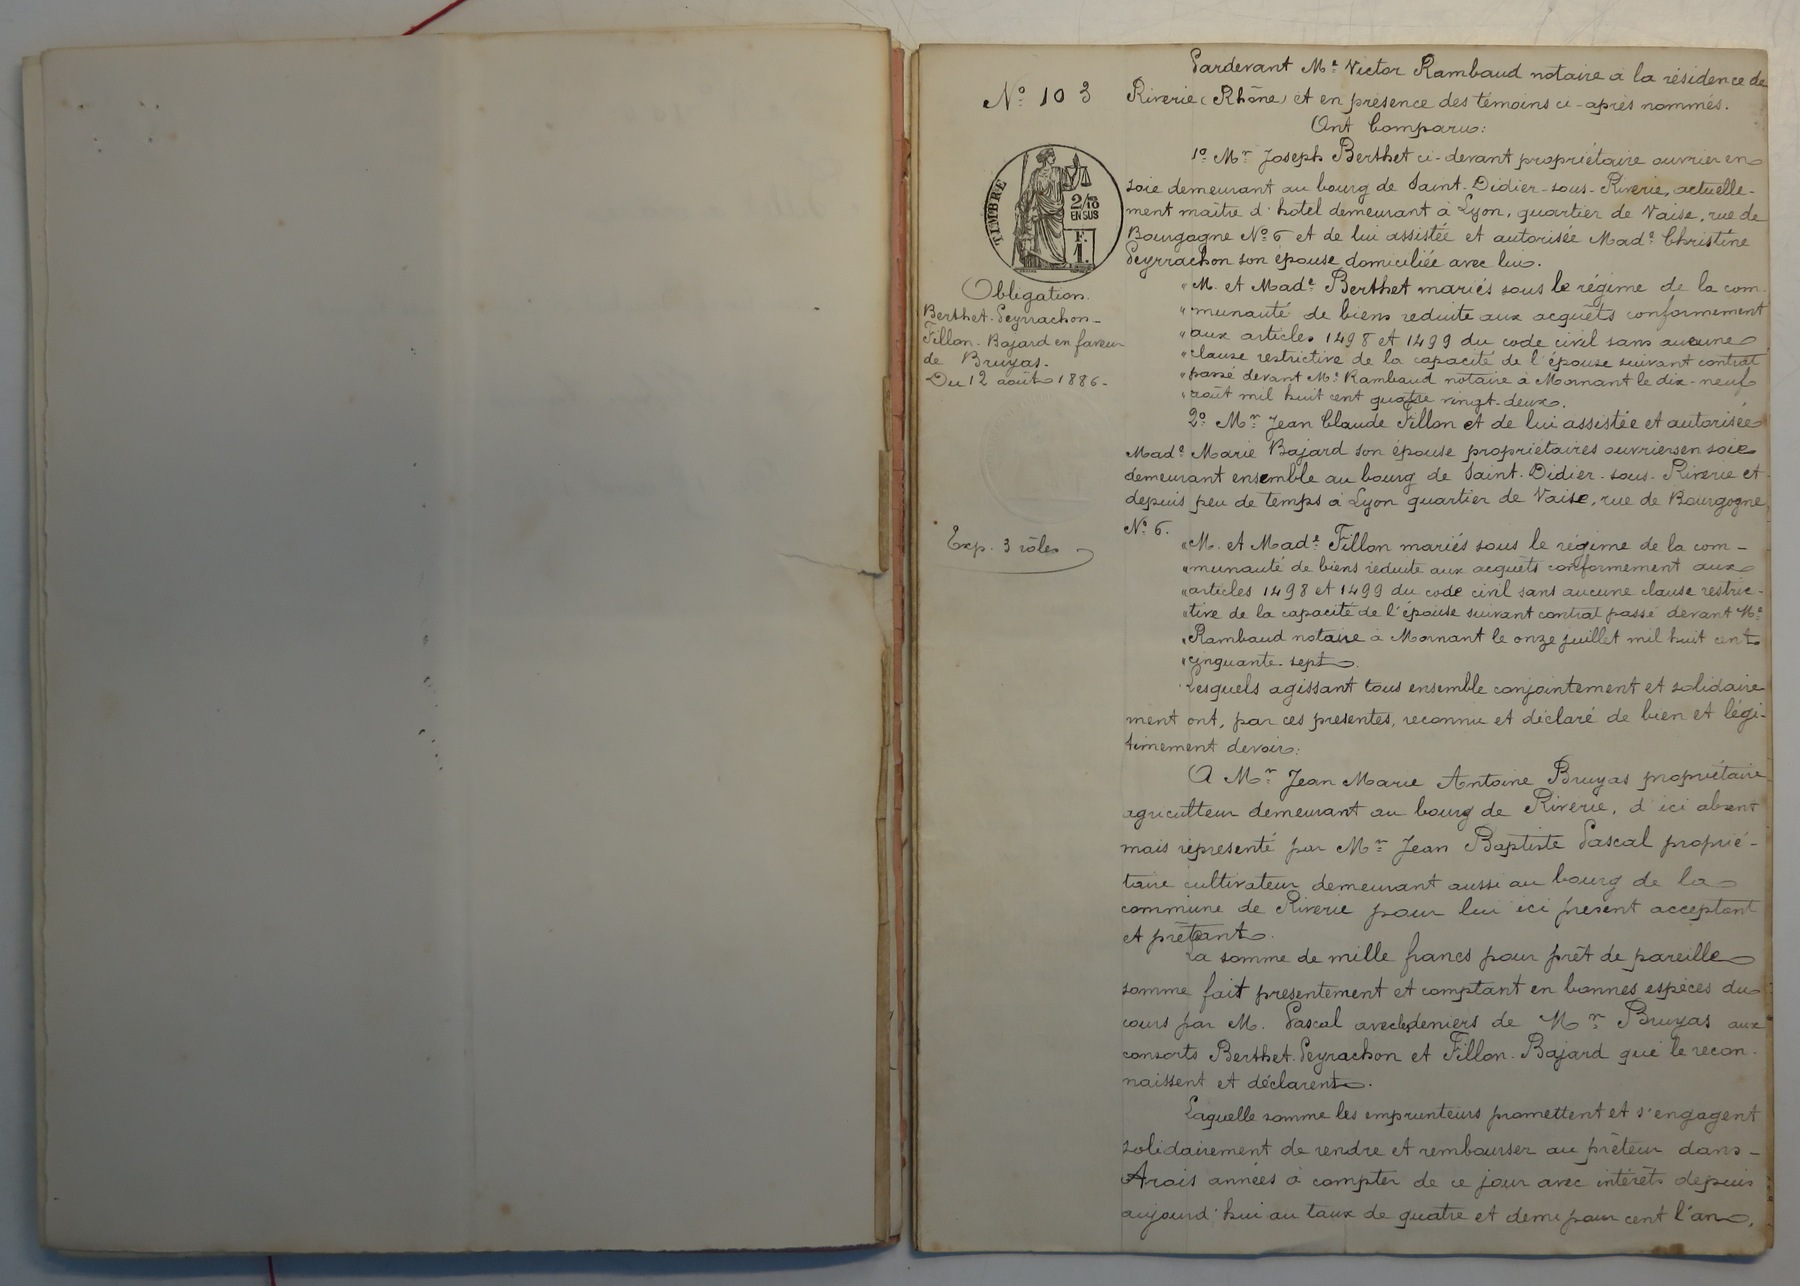 N° 103
TIMBRE
2/10
EN SUS
F.
1.
Obligation.
Berthet-Peyrrachon-
Fillon-Bajard en faveur
de Bruyas.
Du 12 août 1886.
Exp. 3 rôles
Pardevant Me Victor Rambaud notaire à la résidence de
Riverie (Rhône) et en présence des témoins ci-après nommés.
Ont Comparu:
1° Mr Joseph Berthet ci-devant propriétaire ouvrier en
soie demeurant au bourg de Saint-Didier-sous-Riverie, actuelle-
ment maître d'hôtel demeurant à Lyon, quartier de Vaise, rue de
Bourgogne N° 6 et de lui assistée et autorisée Made Christine
Peyrrachon son épouse domiciliée avec lui.
"M. et Made Berthet mariés sous le régime de la com-
"munauté de biens réduite aux acquêts conformement
"aux articles 1498 et 1499 du code civil sans aucune
"clause restrictive de la capacité de l'épouse suivant contrat
"passé devant Me Rambaud notaire à Mornant le dix-neuf
"août mil huit cent quatre vingt-deux.
2° Mr Jean Claude Fillon et de lui assistée et autorisée
Made Marie Bajard son épouse propriétaires ouvriers en soie
demeurant ensemble au bourg de Saint-Didier-sous-Riverie et
depuis peu de temps à Lyon quartier de Vaise, rue de Bourgogne
N° 6.
"M. et Made Fillon mariés sous le régime de la com-
"munauté de biens réduite aux acquêts conformement aux
"articles 1498 et 1499 du code civil sans aucune clause restric-
"tive de la capacité de l'épouse suivant contrat passé devant Me
"Rambaud notaire à Mornant le onze juillet mil huit cent
"cinquante-sept.
Lesquels agissant tous ensemble conjointement et solidaire
ment ont, par ces présentes, reconnu et déclaré de bien et légi-
timement devoir:
A Mr Jean Marie Antoine Bruyas propriétaire
agriculteur demeurant au bourg de Riverie, d'ici absent
mais représenté par Mr Jean Baptiste Pascal proprié-
taire cultivateur demeurant aussi au bourg de la
commune de Riverie pour lui ici présent acceptant
et prêtant.
La somme de mille francs pour prêt de pareille
somme fait présentement et comptant en bonnes espèces du
cours par M. Pascal avec les deniers de Mr Bruyas aux
consorts Berthet-Peyrachon et Fillon-Bajard qui le recon-
naissent et déclarent.
Laquelle somme les emprunteurs promettent et s'engagent
solidairement de rendre et rembourser au prêteur dans
trois années à compter de ce jour avec intérêts depuis
aujourd'hui au taux de quatre et demi pour cent l'an,